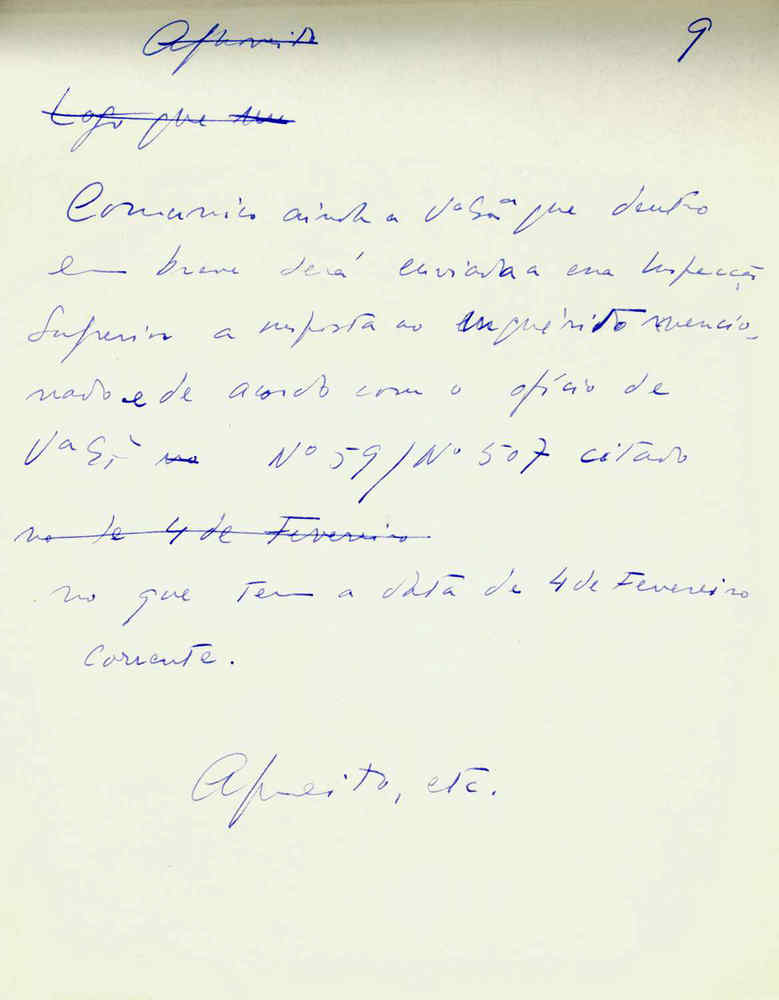 Aproveito
9
Logo que me
Comunico ainda a Vª Exª que dentro
em breve será enviada a essa Inspecção
Superior a resposta ao inquérito mencio-
nado e de acordo com o ofício de
Vª Exª no Nº 59/Nº 507 citado
no de 4 de Fevereiro
no que tem a data de 4 de Fevereiro
corrente.
Aproveito, etc.